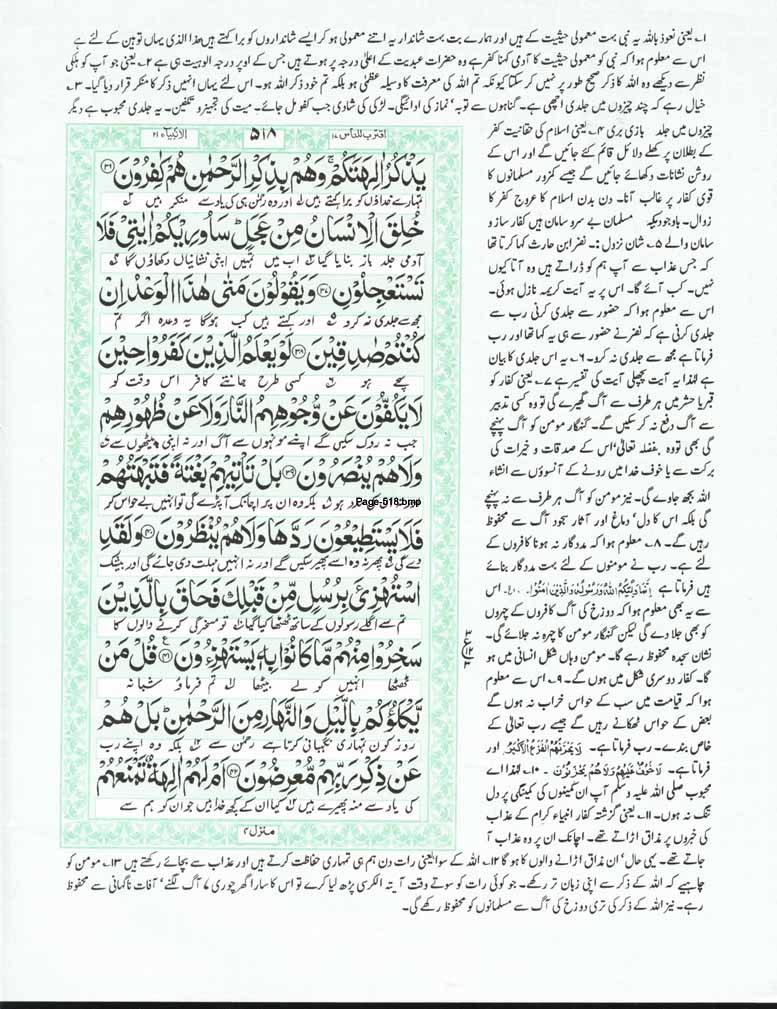 ۱۔ یعنی نعوذ باللہ یہ نبی بہت معمولی حیثیت کے ہیں اور ہمارے بت بہت شاندار یہ اتنے معمولی ہو کر ایسے شانداروں کو برا کہتے ہیں ھذا الذی یہاں توہین کے لئے ہے
اس سے معلوم ہوا کہ نبی کو معمولی حیثیت کا آدمی کہنا کفر ہے وہ حضرات عبدیت کے اعلیٰ درجہ پر ہوتے ہیں جس کے اوپر درجہ الوہیت ہی ہے ۲۔ یعنی جو آپ کو ہلکی
نظر سے دیکھے وہ اللہ کا ذکر صحیح طور پر نہیں کر سکتا کیونکہ تم اللہ کی معرفت کا وسیلہ عظمٰی ہو بلکہ تم خود ذکر اللہ ہو۔ اس لئے یہاں انہیں ذکر کا منکر قرار دیا گیا۔ ۳۔
خیال رہے کہ چند چیزوں میں جلدی اچھی ہے۔ گناہوں سے توبہ' نماز کی ادائیگی۔ لڑکی کی شادی جب کفو مل جائے۔ میت کی تجہیز و تکفین۔ یہ جلدی محبوب ہے دیگر
اقترب للناس ۱۷
۵۱۸
الانبیاء ۲۱
يَذْكُرُ اٰلِهَتَكُمْ ۚ وَهُمْ بِذِكْرِ الرَّحْمٰنِ هُمْ كٰفِرُوْنَ ۳۶
تمہارے خداؤں کو برا کہتے ہیں اور وہ رحمٰن ہی کی یاد سے منکر ہیں
خُلِقَ الْاِنْسَانُ مِنْ عَجَلٍ ؕ سَاُورِيْكُمْ اٰيٰتِيْ فَلَا
آدمی جلد باز بنایا گیا اب میں تمہیں اپنی نشانیاں دکھاؤں گا
تَسْتَعْجِلُوْنِ ۳۷ وَيَقُوْلُوْنَ مَتٰى هٰذَا الْوَعْدُ اِنْ
مجھ سے جلدی نہ کرو اور کہتے ہیں کب ہوگا یہ وعدہ اگر تم
كُنْتُمْ صٰدِقِيْنَ ۳۸ لَوْ يَعْلَمُ الَّذِيْنَ كَفَرُوْا حِيْنَ
سچے ہو کسی طرح جانتے کافر اس وقت کو
لَا يَكُفُّوْنَ عَنْ وُّجُوْهِهِمُ النَّارَ وَلَا عَنْ ظُهُوْرِهِمْ
جب نہ روک سکیں گے اپنے مونہوں سے آگ اور نہ اپنی پیٹھوں سے
وَلَا هُمْ يُنْصَرُوْنَ ۳۹ بَلْ تَاْتِيْهِمْ بَغْتَةً فَتَبْهَتُهُمْ
ہو بلکہ وہ ان پر اچانک آ پڑے گی تو انہیں بے حواس کر
Page-518.bmp
فَلَا يَسْتَطِيْعُوْنَ رَدَّهَا وَلَا هُمْ يُنْظَرُوْنَ ۴۰ وَلَقَدِ
دے گی پھر نہ وہ اسے پھیر سکیں گے اور نہ انہیں مہلت دی جائے گی اور بیشک
اسْتُهْزِئَ بِرُسُلٍ مِّنْ قَبْلِكَ فَحَاقَ بِالَّذِيْنَ
تم سے اگلے رسولوں کے ساتھ ٹھٹھا کیا گیا تو مسخرگی کرنے والوں کا
سَخِرُوْا مِنْهُمْ مَّا كَانُوْا بِهٖ يَسْتَهْزِءُوْنَ ۴۱ قُلْ مَنْ
ٹھٹھا انہیں کو لے بیٹھا تم فرماؤ شبانہ
يَّكْلَؤُكُمْ بِالَّيْلِ وَالنَّهَارِ مِنَ الرَّحْمٰنِ ؕ بَلْ هُمْ
روز کون تمہاری نگہبانی کرتا ہے رحمٰن سے بلکہ وہ اپنے رب
عَنْ ذِكْرِ رَبِّهِمْ مُّعْرِضُوْنَ ۴۲ اَمْ لَهُمْ اٰلِهَةٌ تَمْنَعُهُمْ
کی یاد سے منہ پھیرے ہیں کیا ان کے کچھ خدا ہیں جو ان کو ہم سے
منزل ۴
چیزوں میں جلد بازی بری ۴۔ یعنی اسلام کی حقانیت کفر
کے بطلان پر کھلے دلائل قائم کئے جائیں گے اور اس کے
روشن نشانات دکھائے جائیں گے جیسے کمزور مسلمانوں کا
قوی کفار پر غالب آنا۔ دن بدن اسلام کا عروج کفر کا
زوال۔ باوجودیکہ مسلمان بے سرو سامان ہیں کفار ساز و
سامان والے ۵۔ شان نزول :۔ نضر ابن حارث کہا کرتا تھا
کہ جس عذاب سے آپ ہم کو ڈراتے ہیں وہ آتا کیوں
نہیں۔ کب آئے گا۔ اس پر یہ آیت کریمہ نازل ہوئی۔
اس سے معلوم ہوا کہ حضور سے جلدی کرنی رب سے
جلدی کرنی ہے کہ نضر نے حضور سے ہی یہ کہا تھا اور رب
فرماتا ہے مجھ سے جلدی نہ کرو۔ ۶۔ یہ اس جلدی کا بیان
ہے لہٰذا یہ آیت پچھلی آیت کی تفسیر ہے ۷۔ یعنی کفار کو
قبر یا حشر میں ہر طرف سے آگ گھیرے گی تو وہ کسی تدبیر
سے آگ دفع نہ کر سکیں گے۔ گنہگار مومن کو آگ پہنچے
گی بھی تو وہ بفضلہ تعالٰی' اس کے صدقات و خیرات کی
برکت سے یا خوف خدا میں رونے کے آنسوؤں سے انشاء
اللہ بجھ جاوے گی۔ نیز مومن کو آگ ہر طرف سے نہ پہنچے
گی بلکہ اس کا دل' دماغ اور آثار سجود آگ سے محفوظ
رہیں گے۔ ۸۔ معلوم ہوا کہ مددگار نہ ہونا کافروں کے
لئے ہے۔ رب نے مومنوں کے لئے بہت مددگار بنائے
ہیں فرماتا ہے اِنَّمَا وَلِيُّكُمُ اللّٰهُ وَرَسُوْلُهٗ وَالَّذِيْنَ اٰمَنُوْا۔ الخ۔ اس
سے یہ بھی معلوم ہوا کہ دوزخ کی آگ کافروں کے چہروں
کو بھی جلا دے گی لیکن گنہگار مومن کا چہرہ نہ جلائے گی۔
نشان سجدہ محفوظ رہے گا۔ مومن وہاں شکل انسانی میں ہو
گا۔ کفار دوسری شکل میں ہوں گے۔ ۹۔ اس سے معلوم
ہوا کہ قیامت میں سب کے حواس خراب نہ ہوں گے
بعض کے حواس ٹھکانے رہیں گے جیسے رب تعالٰی کے
خاص بندے۔ رب فرماتا ہے۔ لَا يَحْزُنُهُمُ الْفَزَعُ الْاَكْبَرُ اور
فرماتا ہے۔ لَا خَوْفٌ عَلَيْهِمْ وَلَا هُمْ يَحْزَنُوْنَ ۔ ۱۰۔ لہٰذا اے
محبوب صلی اللہ علیہ وسلم آپ ان کمینوں کی کمینگی پر دل
تنگ نہ ہوں۔ ۱۱۔ یعنی گزشتہ کفار انبیاء کرام کے عذاب
کی خبروں پر مذاق اڑاتے تھے۔ اچانک ان پر وہ عذاب آ
جاتے تھے۔ یہی حال' ان مذاق اڑانے والوں کا ہو گا ۱۲۔ اللہ کے سوا یعنی رات دن ہم ہی تمہاری حفاظت کرتے ہیں اور عذاب سے بچائے رکھتے ہیں ۱۳۔ مومن کو
چاہیے کہ اللہ کے ذکر سے اپنی زبان تر رکھے۔ جو کوئی رات کو سوتے وقت آیتہ الکرسی پڑھ لیا کرے تو اس کا سارا گھر چوری' آگ لگنے' آفات ناگہانی سے محفوظ
رہے۔ نیز اللہ کے ذکر کی تری دوزخ کی آگ سے مسلمانوں کو محفوظ رکھے گی۔